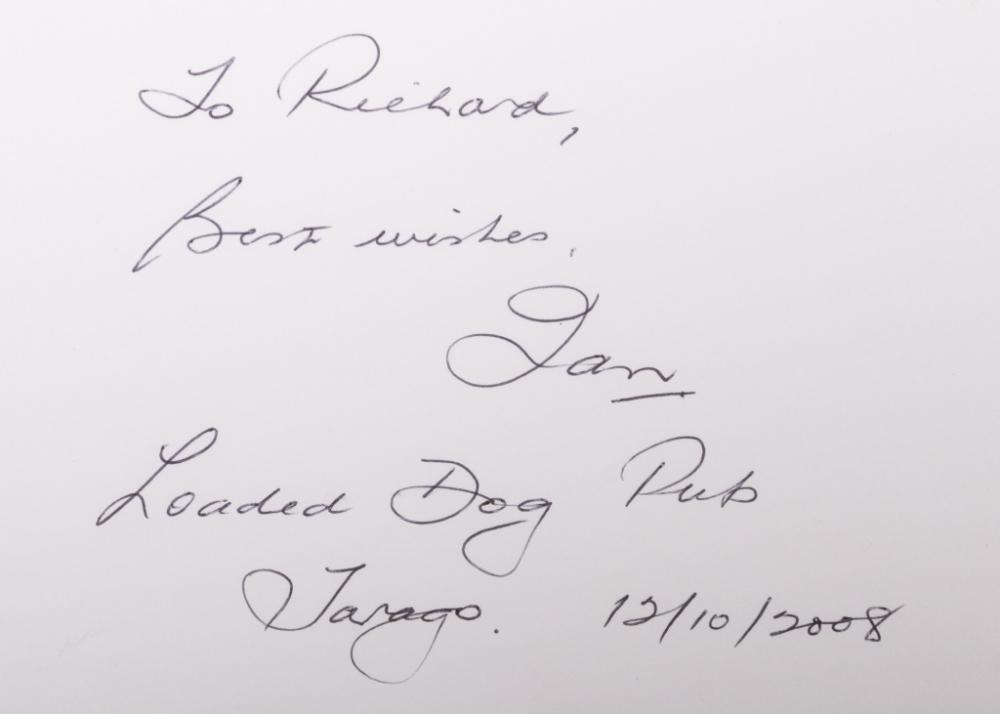 To Richard,
Best wishes.
Ian
Loaded Dog Pub
Tarago. 12/10/2008